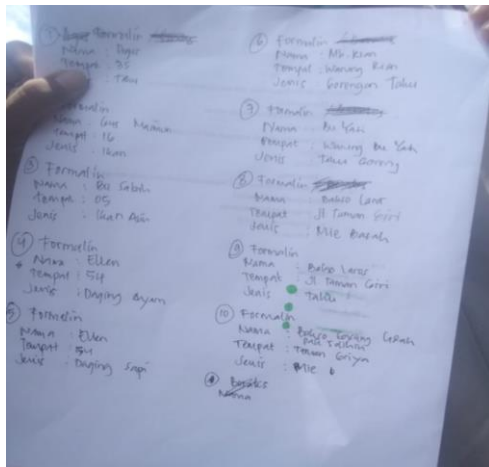 ① Formalin
Nama :
Tempat : 35
: Tahu
Formalin
Nama : Gus Maimun
Tempat : 16
Jenis : Ikan
③ Formalin
Nama : Bu
Tempat : 05
Jenis : Ikan Asin
④ Formalin
Nama : Ellen
Tempat : 54
Jenis : Daging Ayam
⑤ Formalin
Nama : Ellen
Tempat : 54
Jenis : Daging Sapi
⑥ Formalin
Nama : Mb. Rian
Tempat : Warung Rian
Jenis : Gorengan Tahu
⑦ Formalin
Nama : Bu Yah
Tempat : Warung Bu Yah
Jenis : Tahu Goreng
⑧ Formalin
Nama : Bakso Laras
Tempat : Jl Taman Giri
Jenis : Mie Basah
⑨ Formalin
Nama : Bakso Laras
Tempat : Jl Taman Giri
Jenis : Tahu
⑩ Formalin
Nama : Bakso
Tempat : Taman Griya
Jenis : Mie
Boraks
Nama